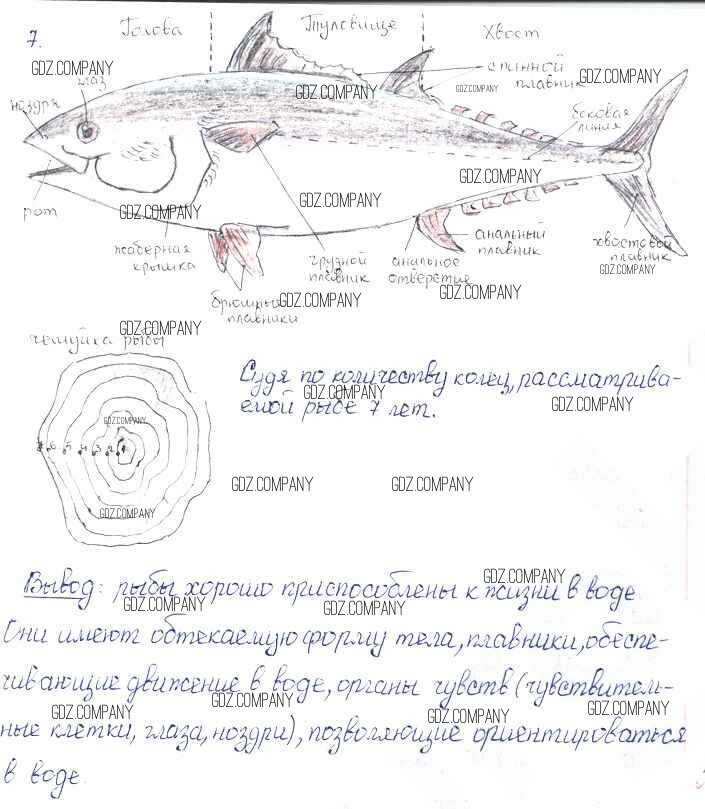 7.
Голова Туловище Хвост
GDZ.COMPANY
глаз
ноздря
GDZ.COMPANY
GDZ.COMPANY
спинной
плавник
GDZ.COMPANY
боковая
линия
GDZ.COMPANY
GDZ.COMPANY
рот
GDZ.COMPANY
жаберная
крышка
грузной
плавник
анальное
отверстие
анальный
плавник
хвостовой
плавник
GDZ.COMPANY
брюшные
плавники
GDZ.COMPANY
GDZ.COMPANY
GDZ.COMPANY
чешуйка рыбы
Судя по количеству колец, рассматрива-
GDZ.COMPANY
емой рыбе 7 лет.
GDZ.COMPANY
GDZ.COMPANY
7 6 5 4 3 2 1
GDZ.COMPANY
GDZ.COMPANY
GDZ.COMPANY
GDZ.COMPANY
Вывод: рыбы хорошо приспособлены к жизни в воде.
GDZ.COMPANY
GDZ.COMPANY
Они имеют обтекаемую форму тела, плавники, обеспе-
чивающие движение в воде, органы чувств (чувствитель-
GDZ.COMPANY
GDZ.COMPANY
GDZ.COMPANY
GDZ.COMPANY
ные клетки, глаза, ноздри), позволяющие ориентироваться
в воде.